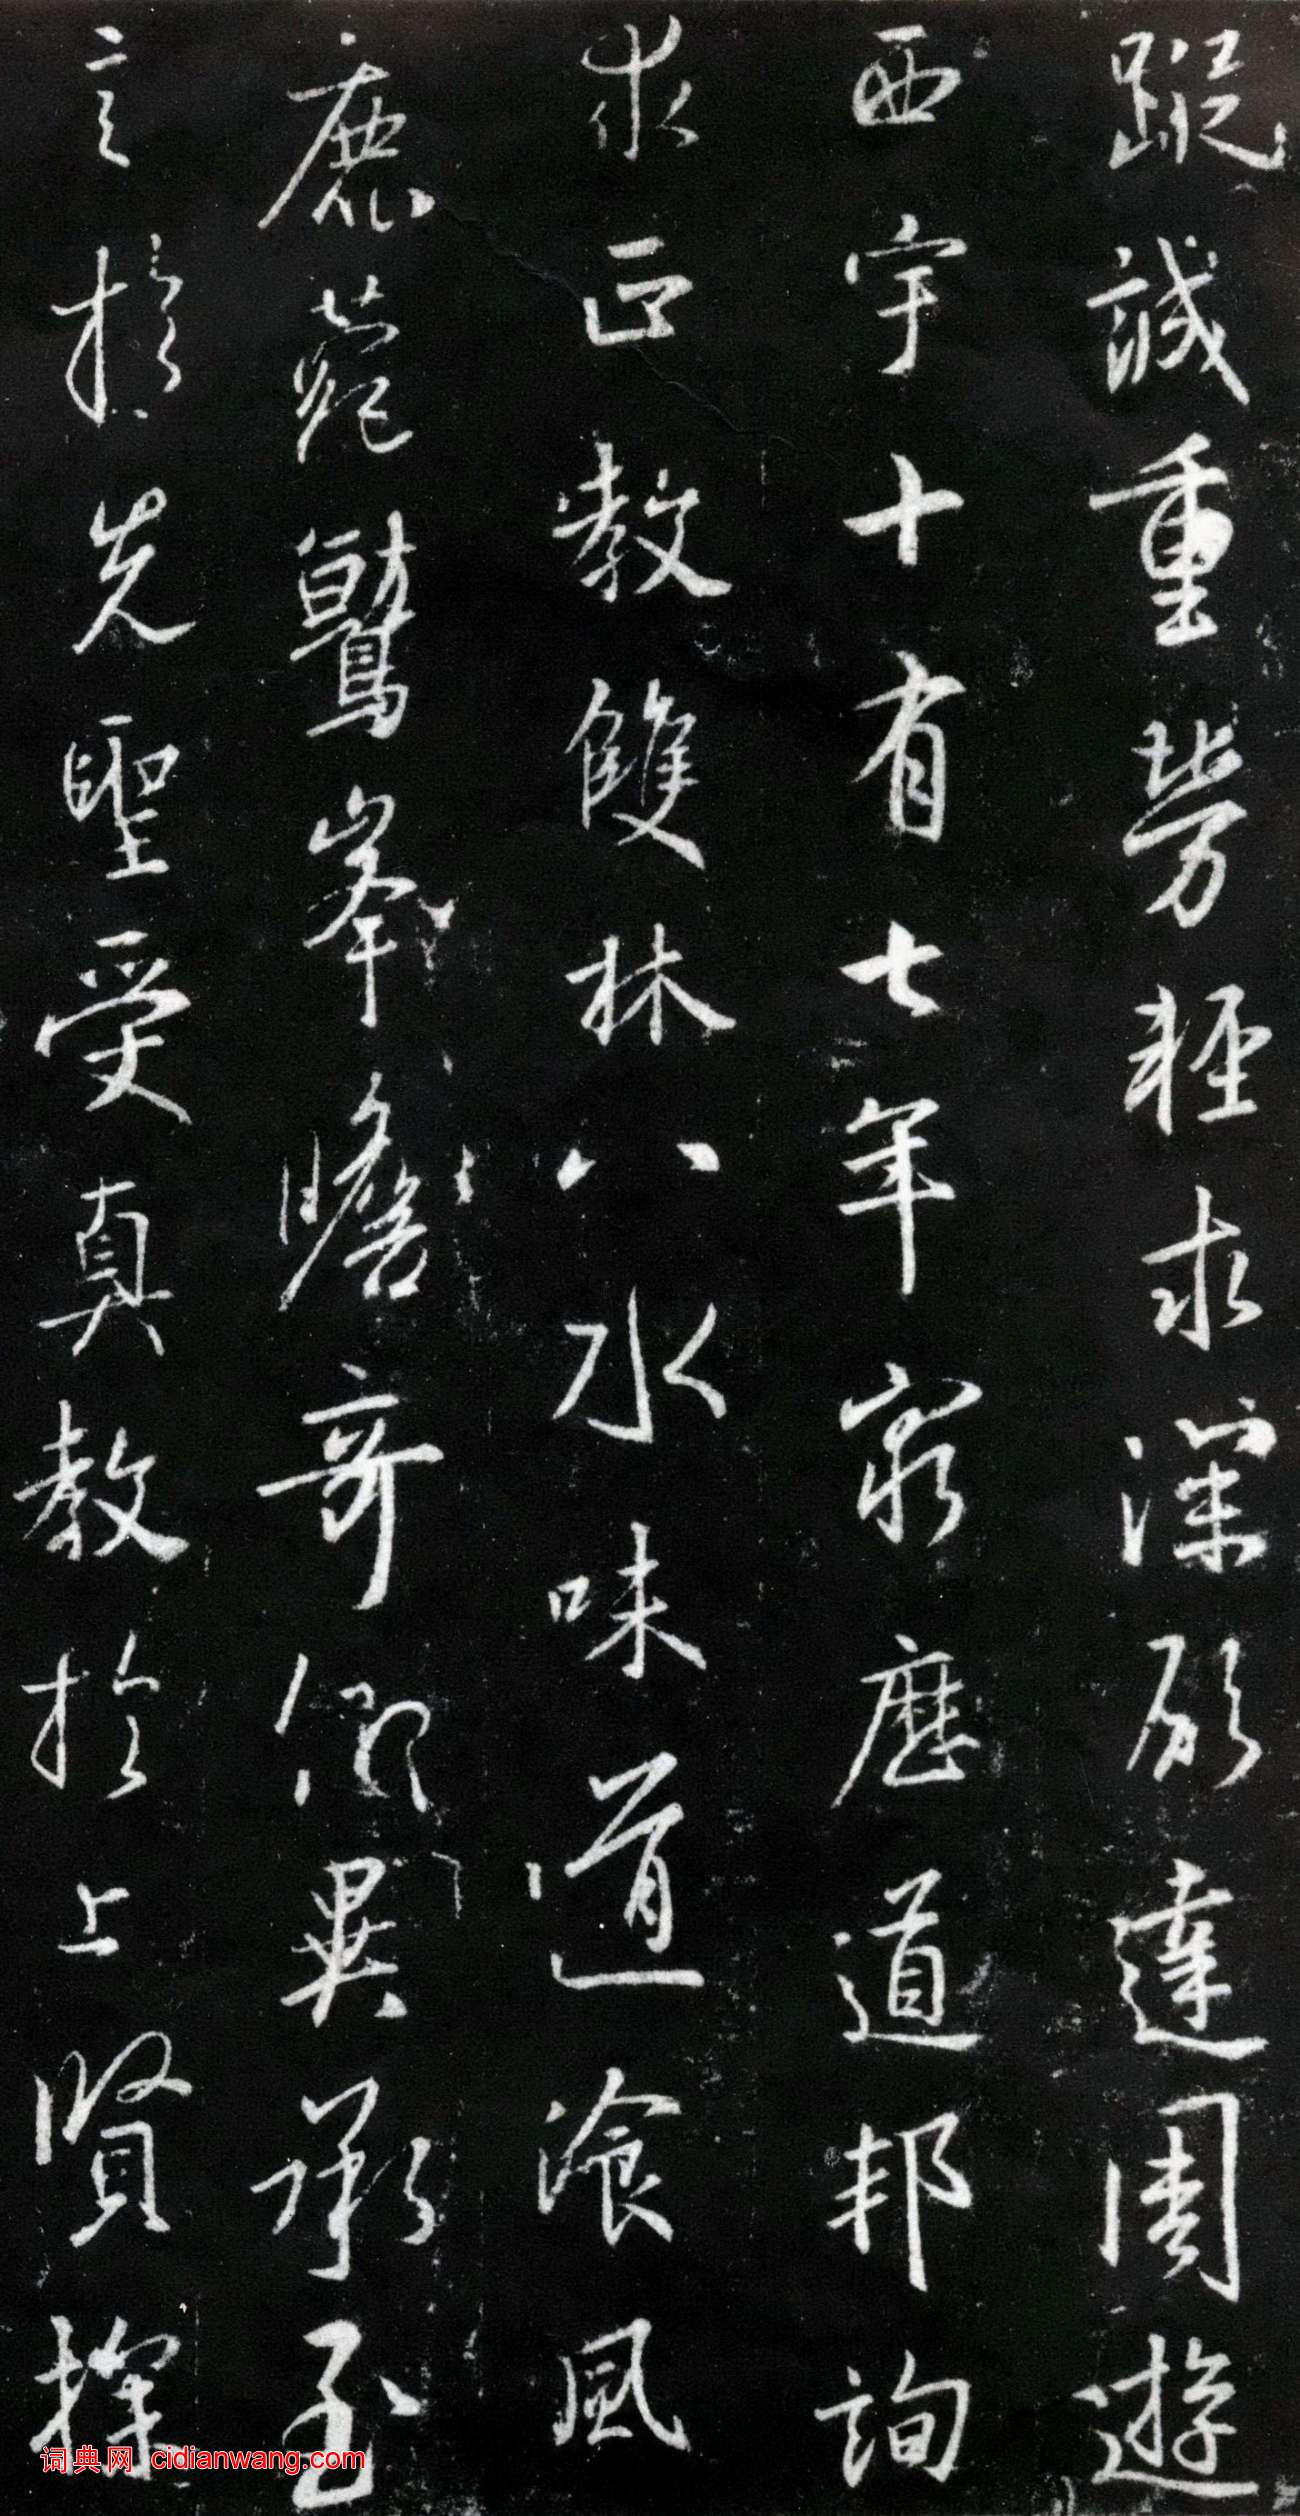 蹤誠重勞輕求深願達周遊
西宇十有七年窮歷道邦詢
求正教雙林八水味道飡風
鹿菀鷲峯瞻奇仰異承至
言於先聖受真教於上賢探
词典网 cidianwang.com